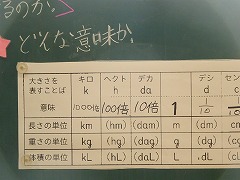 るのか。
どんな意味か
大きさを表すことば キロ k ヘクト h デカ da デシ d セン
意味 1000倍 100倍 10倍 1 1/10
長さの単位 km (hm) (dam) m (dm)
重さの単位 kg (hg) (dag) g (dg)
体積の単位 kL (hL) (daL) L dL